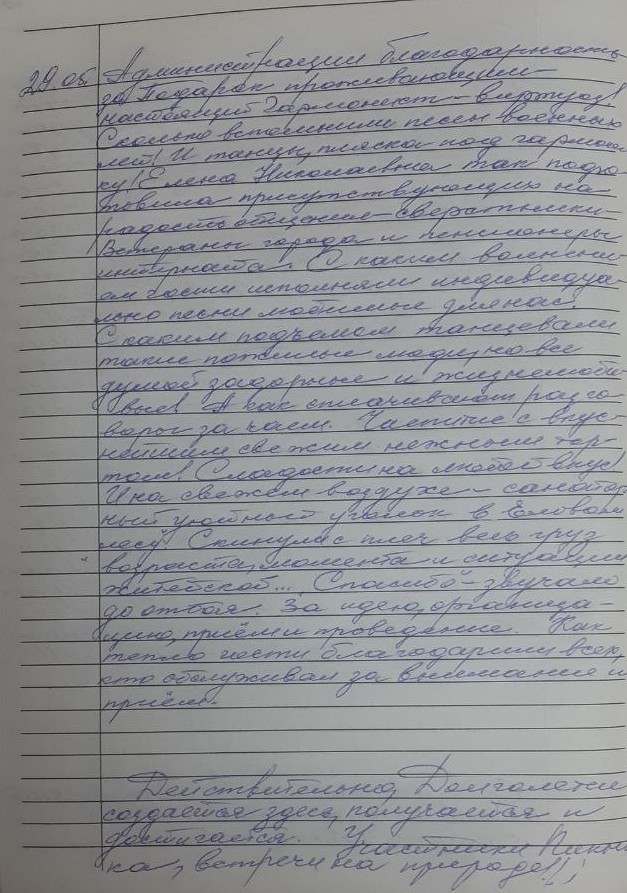 29.05. Администрации благодарность
за Подарок проживающим -
настоящий Гармонист - виртуоз!
Сколько вспомнили песен военных
лет! И танцы, пляска под гармош
ку! Елена Николаевна так подго
товила присутствующих на
радость общение - сверстники -
Ветераны города и пенсионеры
интерната. С каким волнени
ем гости исполняли индивидуа-
льно песни любимые для нас!
С каким подъемом танцевали
такие пожилые люди, но все
душой задорные и жизнелюби
вые! А как сплачивают разго
воры за чаем. Чаепитие с вкус
нейшим свежим нежным тор-
том! Сладости на любой вкус!
И на свежем воздухе - санатор
ный уютный уголок в Еловом
лесу! Скинули с плеч весь груз
возраста, момента и ситуации
житейской... Спасибо - звучало
до отбоя. За идею, организа-
цию, приём и проведение. Как
тепло гости благодарили всех,
кто обслуживал за внимание и
приём.
Действительно, Долголетие
создается здесь, получается и
достигается. Участники Пикни
ка, встречи на природе!!